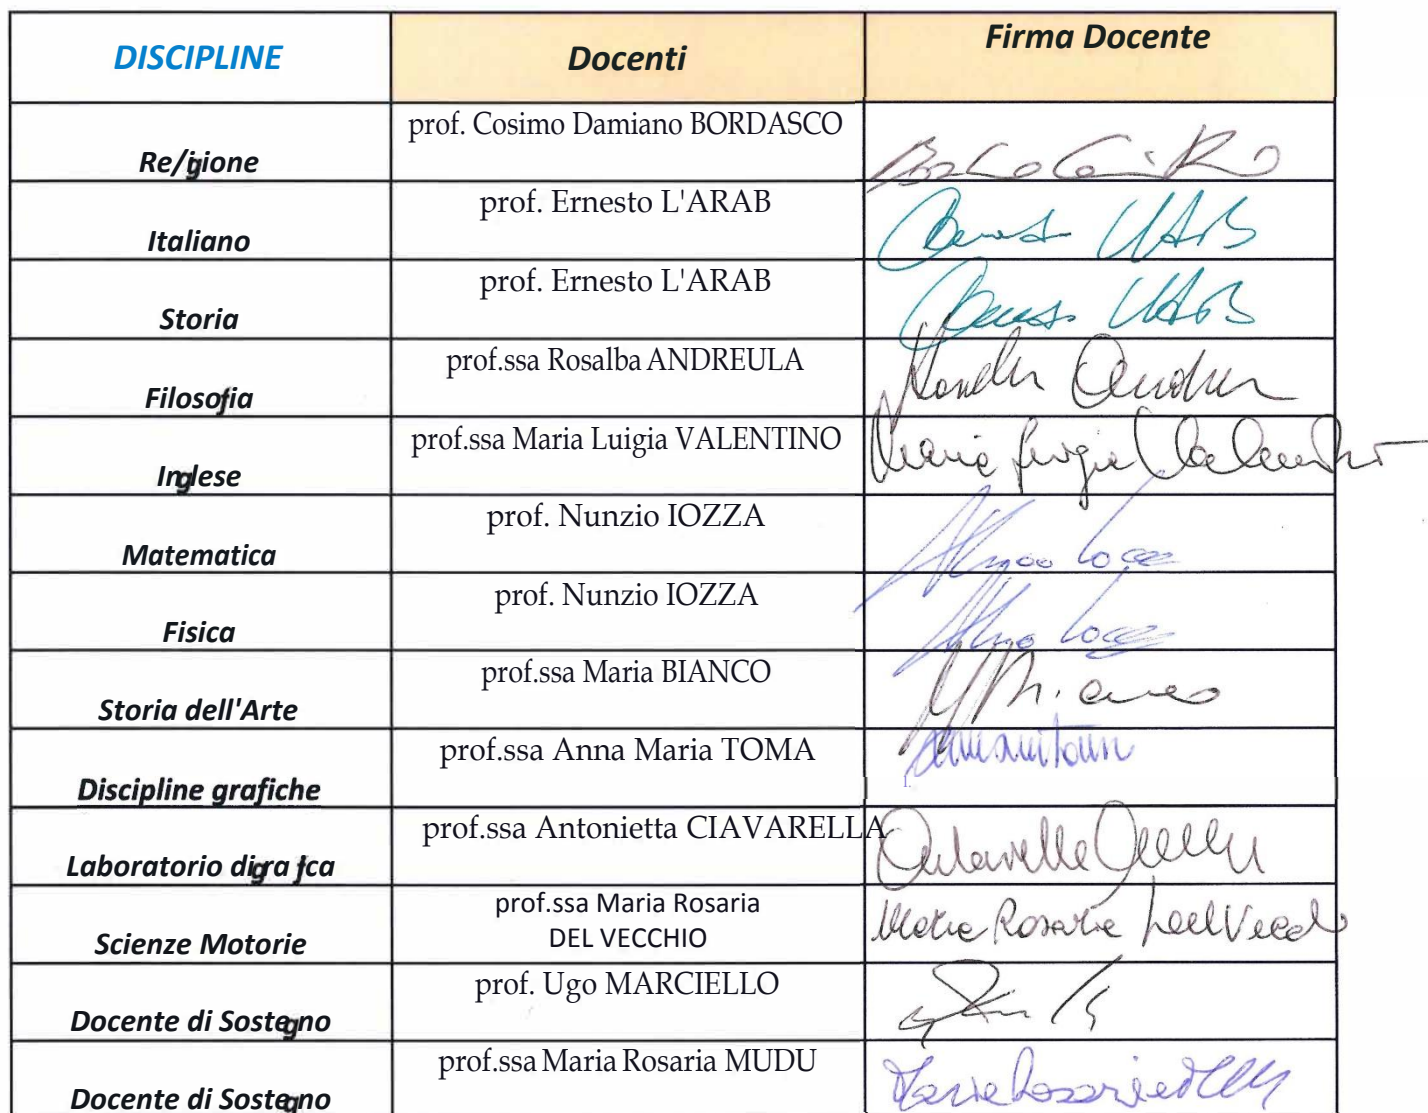 DISCIPLINE Docenti Firma Docente
Re/igione prof. Cosimo Damiano BORDASCO
Italiano prof. Ernesto L'ARAB
Storia prof. Ernesto L'ARAB
Filosofia prof.ssa Rosalba ANDREULA
Inglese prof.ssa Maria Luigia VALENTINO Maria Luigia Valentino
Matematica prof. Nunzio IOZZA
Fisica prof. Nunzio IOZZA
Storia dell'Arte prof.ssa Maria BIANCO
Discipline grafiche prof.ssa Anna Maria TOMA
Laboratorio di gra fca prof.ssa Antonietta CIAVARELLA
Scienze Motorie prof.ssa Maria Rosaria
DEL VECCHIO Maria Rosaria Del Vecchio
Docente di Sostegno prof. Ugo MARCIELLO
Docente di Sostegno prof.ssa Maria Rosaria MUDU